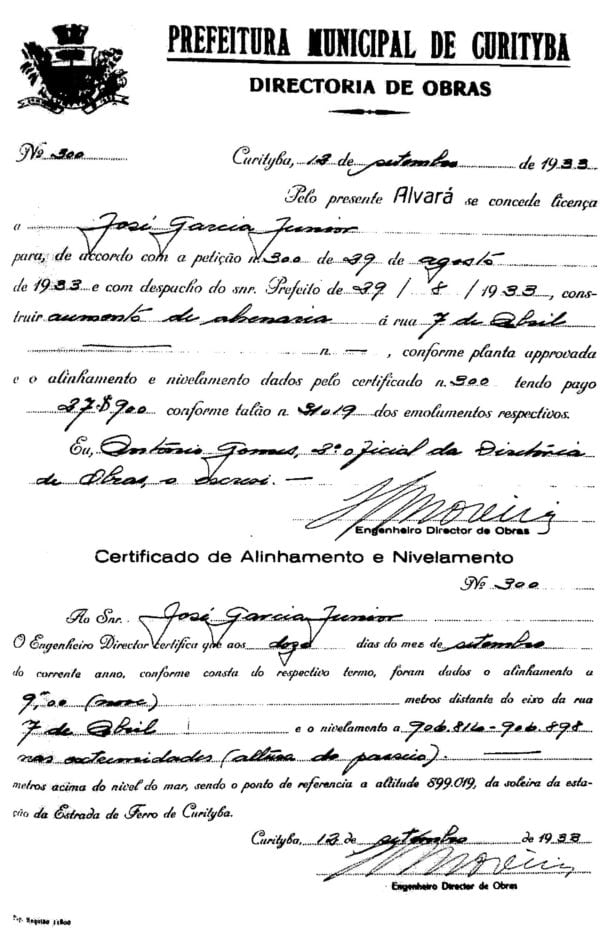 PREFEITURA MUNICIPAL DE CURITYBA
DIRECTORIA DE OBRAS
Nº 300 Curityba, 12 de setembro de 1933
Pelo presente Alvará se concede licença
a José Garcia Junior
para, de accordo com a petição n. 300 de 29 de agosto
de 1933 e com despacho do snr. Prefeito de 29 / 8 / 1933, cons-
truir aumento de alvenaria á rua 7 de Abril
n. — , conforme planta approvada
e o alinhamento e nivelamento dados pelo certificado n. 300 tendo pago
27$900 conforme talão n. 31019 dos emolumentos respectivos.
Eu, Antônio Gomes, 2º oficial da Diretória
de Obras, o escrevi. —
Moreira
Engenheiro Director de Obras
Certificado de Alinhamento e Nivelamento
Nº 300
Ao Snr. José Garcia Junior
O Engenheiro Director certifica que aos doze dias do mez de setembro
do corrente anno, conforme consta do respectivo termo, foram dados o alinhamento a
9,00 (nove) metros distante do eixo da rua
7 de Abril e o nivelamento a 906.814 - 906.898
nas extremidades (altura do passeio)
metros acima do nivel do mar, sendo o ponto de referencia a altitude 899.019, da soleira da esta-
ção da Estrada de Ferro de Curityba.
Curityba, 12 de setembro de 1933
Moreira
Engenheiro Director de Obras